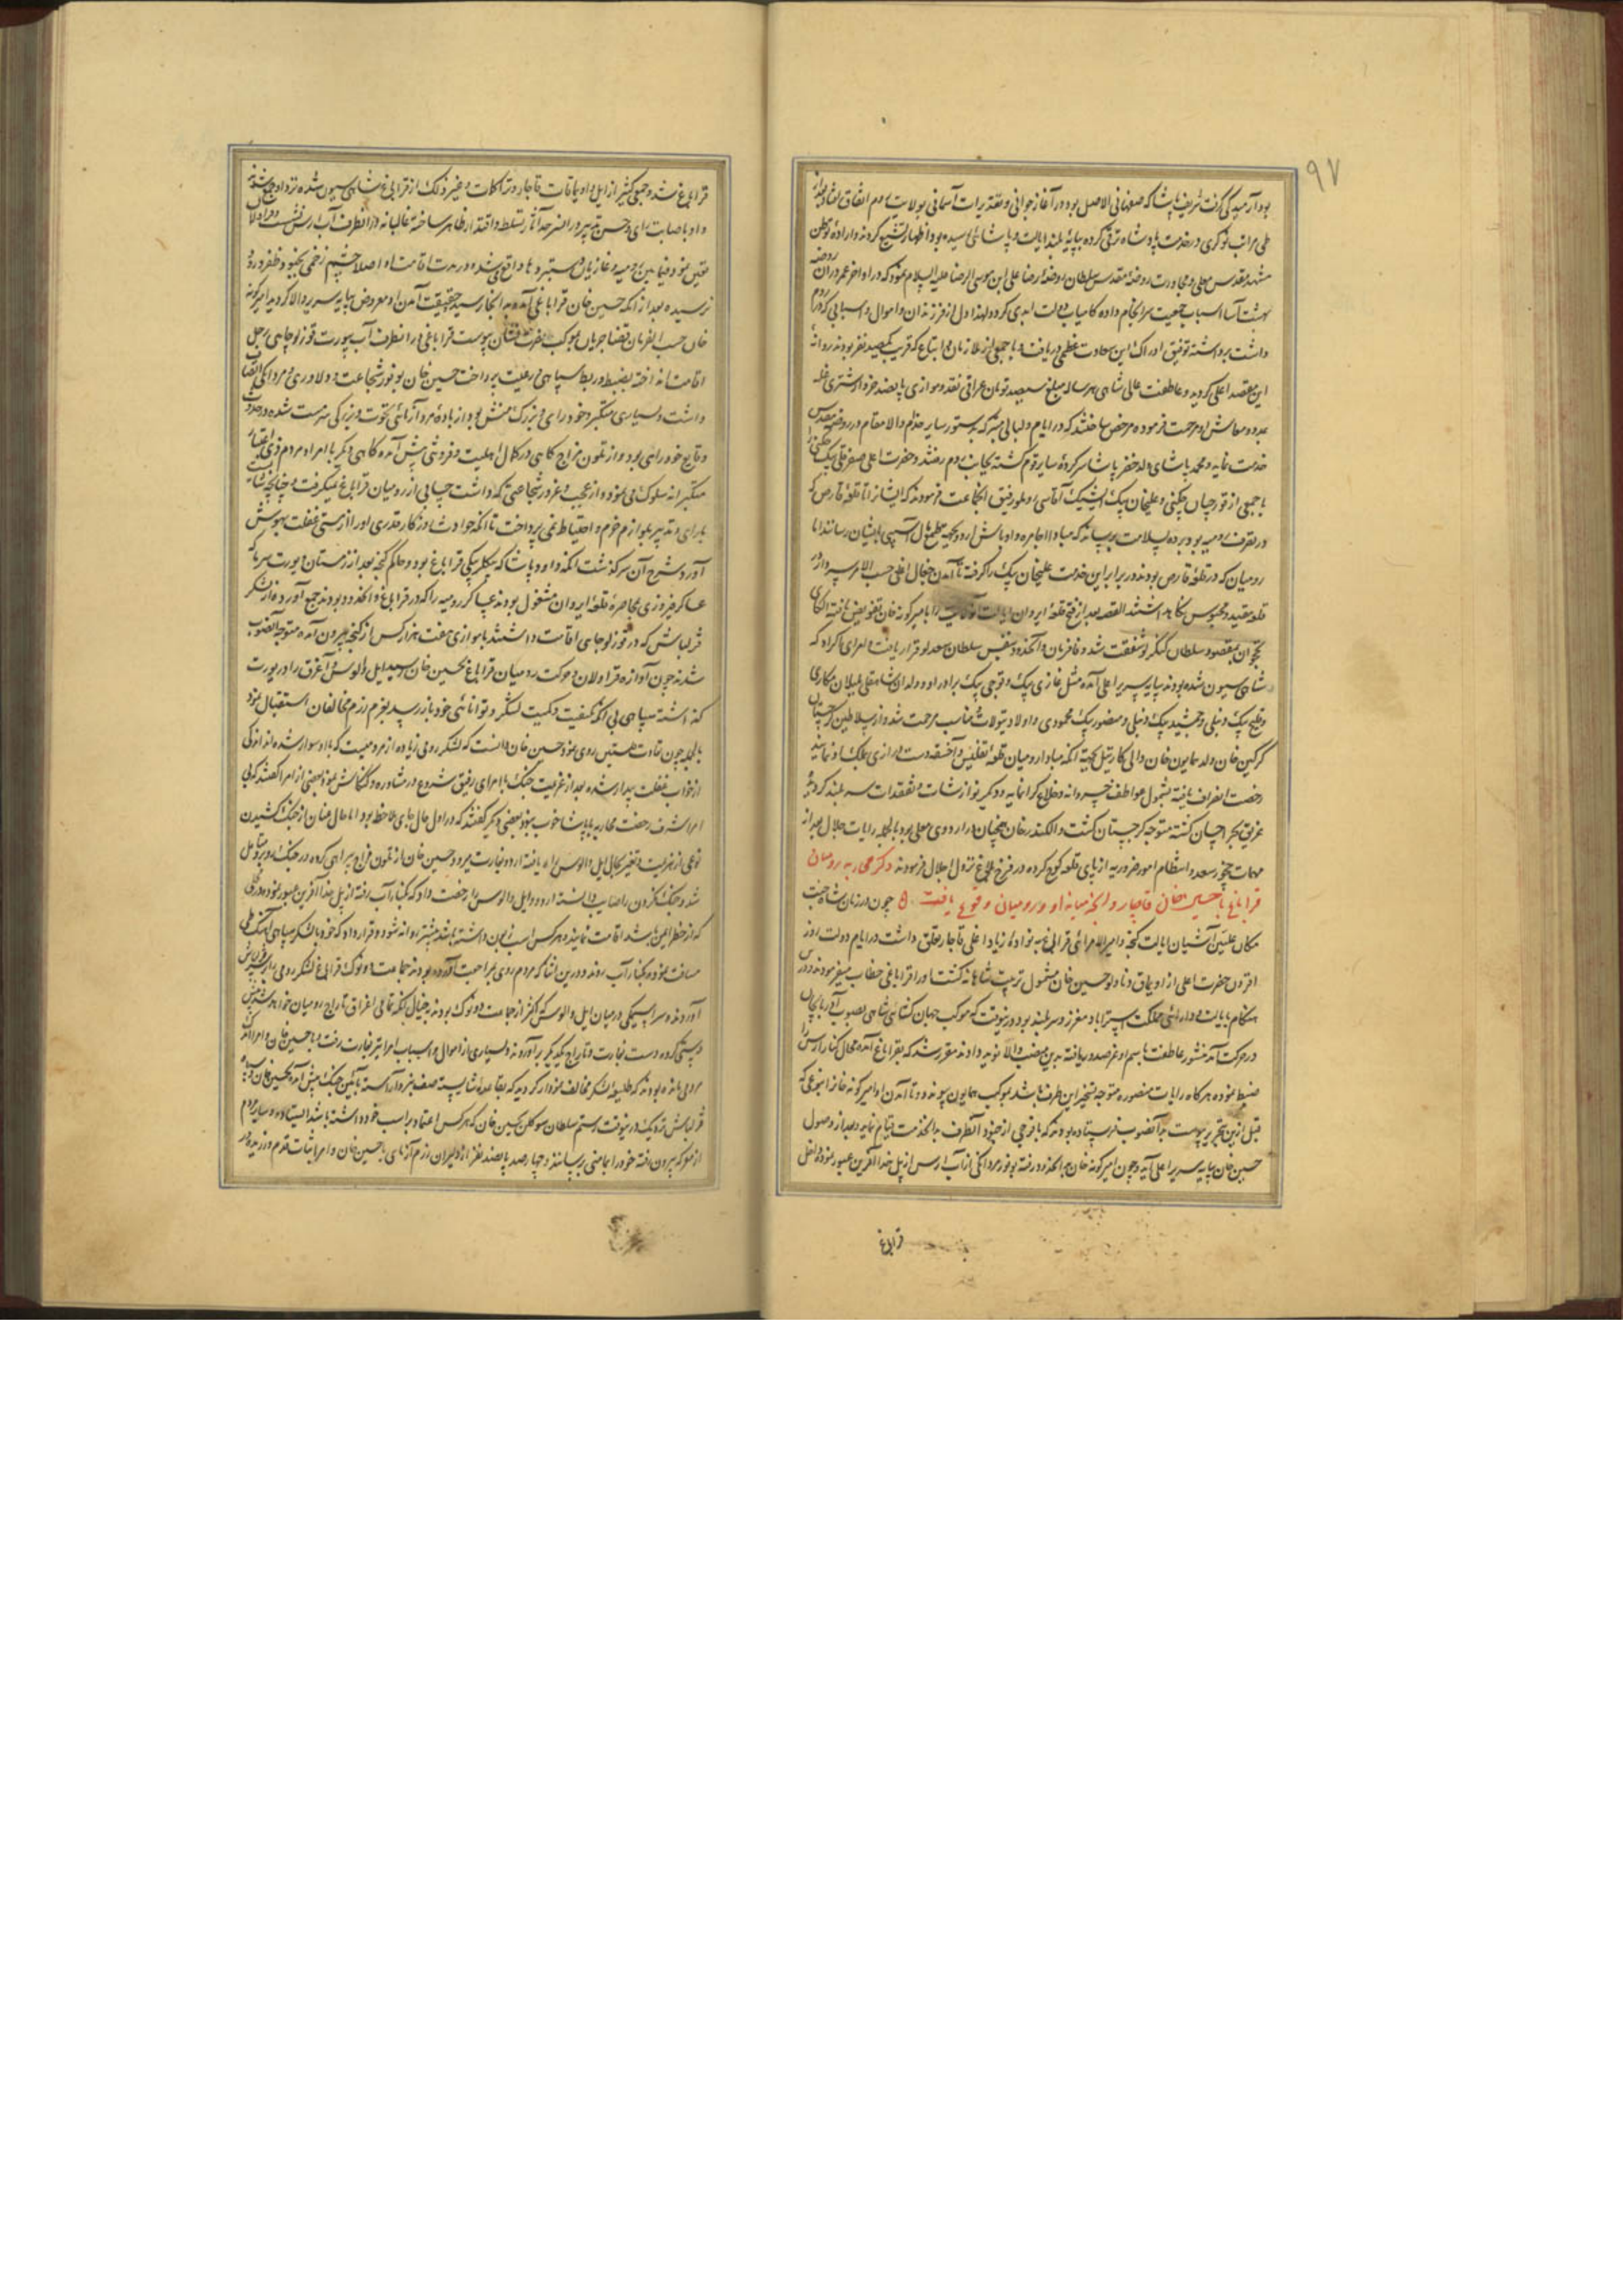 ۹۷
بود آرمیدگی گرفت شریف پاشا که صفهانی الاصل بود در آغاز جوانی و تقدیرات آسمانی بولایت روم اتفاق افتاده
طی مراتب نوکری در خدمت پادشاه ترقی کرده بپایهٔ بلند ایالت و پاشائی رسیده بود اظهار تشیع کرده اراده توطن
مشهد مقدس معلی و مجاورت روضهٔ مقدس سلطان روضهٔ رضا علی ابن موسی الرضا علیه السلام نمود که در اواخر عمر در آن روضه
بهشت آسا اسباب جمعیت سرانجام داده کامیاب دولت ابدی گردد لهذا دل از فرزندان و اموال و اسبابی که در روم
داشت برداشته توفیق ادراک این سعادت عظمی دریافت و با جمعی از ملازمان و اتباع که قریب یکصد نفر بودند روانه
این مقصد اعلی گردید و عاطفت علی شاهی هر ساله مبلغ سیصد تومان عراقی نقد و موازی پانصد خروار شتری غله
مدد معاش او مرحمت فرموده مرخص ساختند که در ایام و لیالی متبرکه بدستور سایر خدام والا مقام در روضهٔ مقدس
خدمت نماید و محمد پاشای ولد خضر پاشا سرکرده سایر قوم گشته بجانب روم رفتند و حضرت اعلی صفر قلی بیک چگنی را
با جمعی از قورچیان چگنی و علیخان بیک ایشیک آقاسی را بطور رفیق انجماعت فرمودند که ایشانرا تا قلعه قارص که
در تصرف رومیه بود برده بسلامت برسانند که مبادا اجامره و اوباش اردو بجهة طمع مال آسیبی بایشان رسانند اما
رومیان که در قلعهٔ قارص بودند در برابر این خدمت علیخان بیک را گرفته تا آمدن جغال اغلی حسب الامر سردار در
قلعه مقید و محبوس نگاه داشتند القصه بعد از فتح قلعهٔ ایروان ایالت آنولایت را بامیر گونه خان تفویض یافته الکای
نخجوان بمقصود سلطان کنگرلو شفقت شد و غازیان و انحدود بنفس سلطان سعدلو قرار یافت و امرای اکراد که
شاهی سیون شده بودند بپایه سریر اعلی آمده مثل غازی بیک و قوچی بیک برادر او و ولدان شاهقلی بلیلان مکاری
و قلیج بیک دنبلی و جمشید بیک دنبلی و منصور بیک محمودی و اولاد تیولات مناسب مرحمت شد و از سلاطین گرجستان
گرگین خان ولد سمایون خان والی کارتیل بجهة آنکه مبادا رومیان قلعه تفلیس و آخسقه دست درازی بملک او نمایند
رخصت انصراف یافته بشمول عواطف خسروانه و خلاع گرانمایه و دیگر نوازشات و تفقدات سربلند گردیده
غریق بحر احسان گشته متوجه گرجستان گشت و الکسندر خان همچنان در اردوی معلی بود بالجمله رایات جلال بعد از
مهمات چخور سعد و انتظام امور ضروریه از پای قلعه کوچ کرده در فرخ بلاغ نزول اجلال فرمودند ذکر محاربه رومیان
قراباغ با حسین خان قاجار و انچه میانه او و رومیان وقوع یافت چون در زمان شاه جنت
مکان علیین آشیان ایالت گنجه و امیرالامرائی قراباغ به نواده زیاد اغلی قاجار تعلق داشت در ایام دولت روز
افزون حضرت اعلی از اویماق دنادلو حسین خان مشمول تربیت شاهانه گشت و را قراباغی خطاب میفرمودند و درین
هنگام بایالت و دارائی مملکت استراباد معزز و سربلند بود در ینوقت که موکب جهان گشائی شاهی بصوب آذربایجان
در حرکت آمد منشور عاطفت باسم او عز صدور یافته بدین منصب والا نوید دادند مقرر شد که بقراباغ آمده محال کنار ارس را
ضبط نموده هرگاه رایات منصوره متوجه تسخیر این طرف باشد بموکب همایون پیوندد و تا آمدن او امیر گونه خان را بنوعی که
قبل ازین تحریر پیوست بدانصوب فرستاده بودند که با فوجی از جنود آنطرف بدانخدمت قیام نماید و بعد از وصول
حسین خان بپایه سریر اعلی آید و چون امیر گونه خان بدانحدود رفته بوفور مردانگی از آب ارس از پل خدا آفرین عبور نمود داخل
قراباغ
قراباغ شد و جمعی کثیر از ایل و اویماقات قاجار و ترکمانات و غیر ذلک از قراباغ شاهی سیون شده نزد او جمع شدند
و او باصابت رای و حسن تدبیر در السنر حد آثار تسلط و اقتدار ظاهر ساخته غالبانه در آنطرف آب ارس نشست و مراولا
تعین نمود فیمابین رومیه و غازیان دستبردها واقع شده در مدت اقامت او اصلا چشم زخمی بجنود ظفر ورود
نرسیده بعد از آنکه حسین خان قراباغی آمده بدانجا رسید حقیقت آمدن او معروض پایه سریر والا گردید امیر گونه
خان حسب الفرمان قضا جریان بموکب نصرت نشان پیوست قراباغی در انطرف آب بیورت قوزلوچای رحل
اقامت انداخته بضبط و ربط سپاهی و رعیت پرداخت حسین خان بوفور شجاعت و دلاوری و مردانگی اتصاف
داشت و بسیاری متکبر و خود رای و بزرگ منش بود از بادهٔ مردآزمائی نخوت و بزرگی سرمست شده در حدوث
وقایع خود رای بود و از تلون مزاج گاهی در کمال اهلیت و فروتنی پیش آمده گاهی دیگر با امرا و مردم ذوی اعتبار
متکبرانه سلوک می نمود و از عجب و غرور شجاعتی که داشت حسابی از رومیان قراباغ نمیگرفت و چنانچه شاید
بارای و تدبیر بلوازم حزم و احتیاط نمی پرداخت تا آنکه حوادث روزگار قدری او را از مستی غفلت بهوش
آورد و شرح آن سرگذشت انکه داود پاشا که بیگلربیگی قراباغ بود و حاکم گنجه بعد از زمستان و یورت سرما که
عساکر فیروزی بمحاصرهٔ قلعهٔ ایروان مشغول بودند عساکر رومیه را که در قراباغ و انحدود بودند جمع آورده از لشکر
قزلباش که در قوزلوچای اقامت داشتند با موازی هفت هزار کس از گنجه بیرون آمده متوجه آنصوب
شدند چون آوازه قراولان و حرکت رومیان قراباغ بحسین خان رسید ایل و الوس و آغرق را در یورت
گذاشته سپاهی بی آنکه کیفیت و کمیت لشکر و توانائی خود باز رسد بعزم رزم مخالفان استقبال نمود
بالجمله چون تفاوت فئتین روی نمود حسین خان دانست که لشکر رومی زیاده از مردمیست که با او سوار شده اند اندکی
از خواب غفلت بیدار شده بعد از عزیمت جنگ با امرای رفیق شروع در مشاوره و کنکاش نمود بعضی از امرا گفتند که بی
امر اشرف رخصت محاربه با پاشا خوب نبود بعضی دیگر گفتند که در اول حال جای ملاحظه بود اما حال عنان از جنگ کشیدن
نوعی از هزیمت و تغیر بحال ایل و الوس راه یافته اردو بغارت میرود حسین خان از تلون مزاج سراهی کرده در جنگ رو برو متامل
شد و جنگ نکردن را صایب دانسته اردو و ایل و الوس را رخصت داد که بکنار آب رفته از پل خدا آفرین عبور نموده در محلی
که از خطر ایمن باشد اقامت نمایند و هر کس اسب زبون داشته باشد پیشتر روانه شود و قرار داد که خود با لشکر سپاهی آهنگ طی
مسافت نموده بکنار آب روند و درین اثنا که مردم روی بمراجعت آورده بودند جماعت دونوک قراباغ لشکر رومی را بر سر قزلباش
آوردند و سراسیمگی در میان ایل و الوس که اکثر از جماعت دونوک بودند بخیال آنکه تمامی اغراق بتاراج رومیان خواهد رفت پیش
دستی کرده دست بغارت و تاراج یکدیگر برآوردند و بسیاری از اموال و اسباب امرا نیز بغارت رفت و با حسین خان و امرا اندک
مردمی مانده بودند که طلیعه لشکر مخالف نمودار گردید که بقاعده شایسته صف نبرد آراسته بآیین جنگ پیش آمده بحسین خان و سپاه
قزلباش نزدیک در ینوقت رستم سلطان سوکلن بحسین خان که هر کس اعتماد بر اسب خود داشته باشد ایستاده و سایر مردم
از معرکه بیرون رفته خود را بمأمنی رسانند و چهارصد پانصد نفر از دلیران رزم آزمای با حسین خان و امرا ثبات قدم ورزیده در